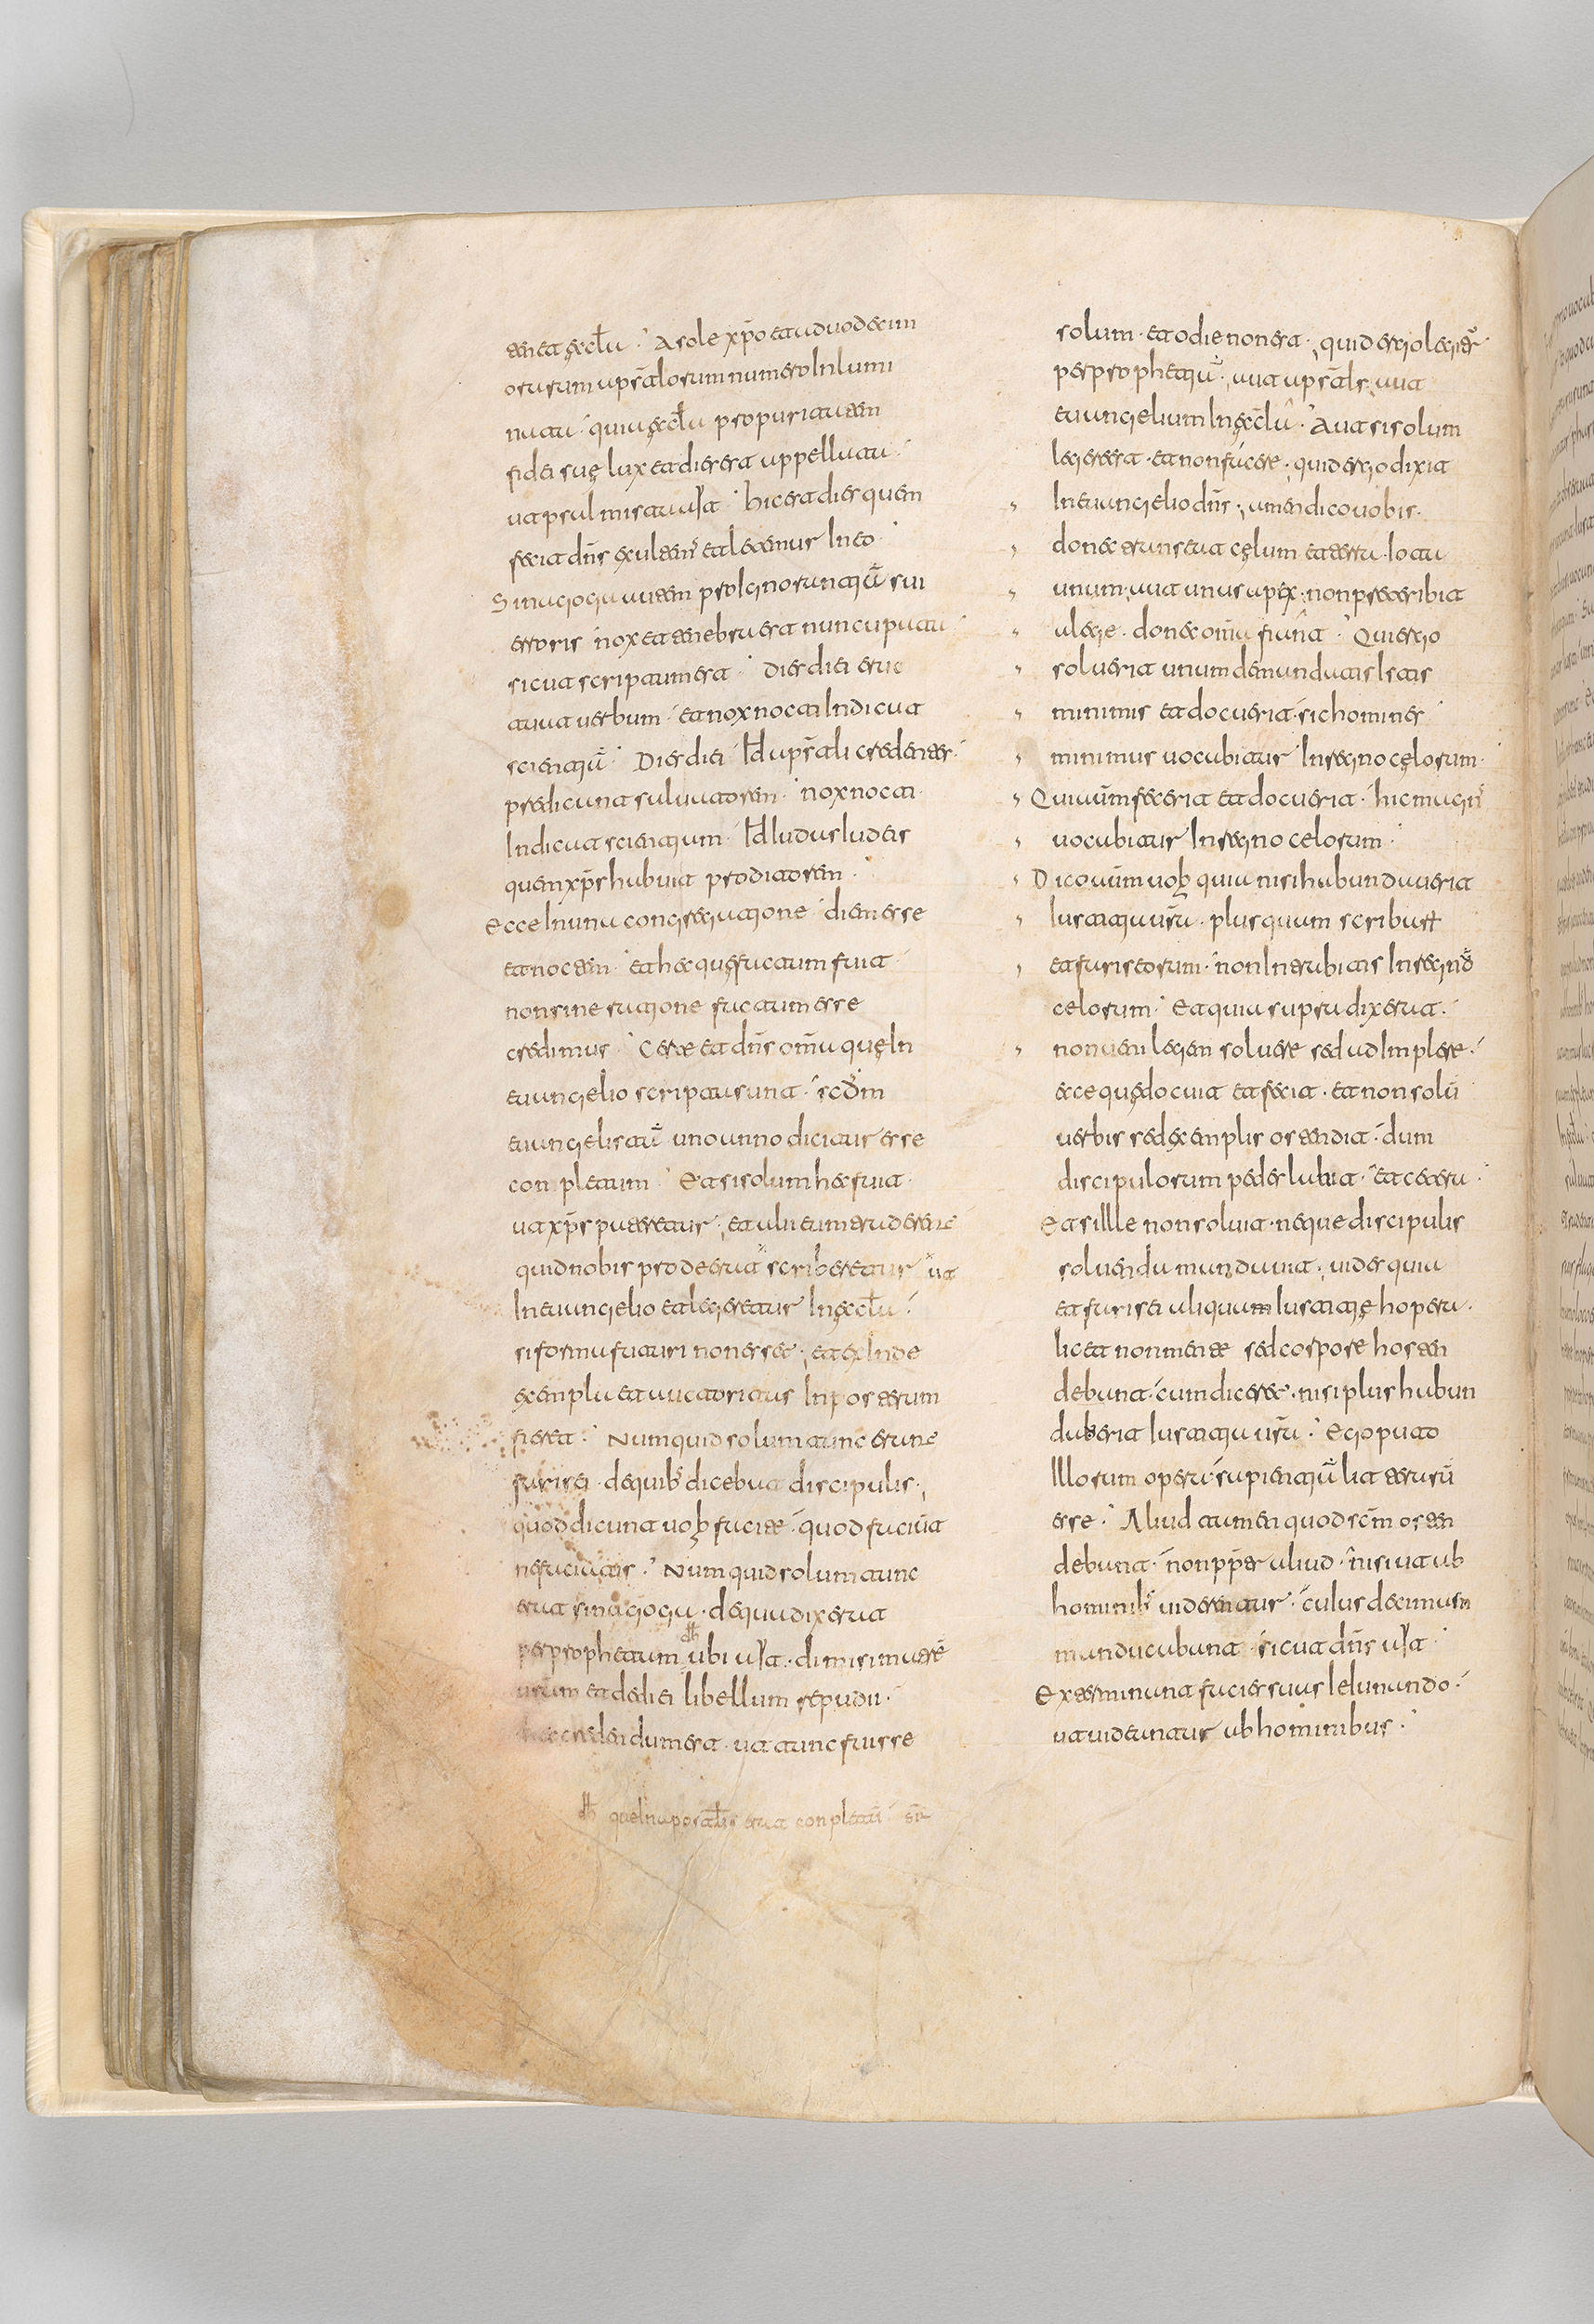 tenet ęccl̄a. A sole xp̄o et a duodecim
orarum apsťlorum numero Inlumi
nata. quia ęccl̄a pro puritatem
fidei suę lux et dies est appellata.
ut psalmista ait. hic est dies quem
fecit dn̄s exultem' et letemur In eo.
Sinagoga autem pro Ignorantiā sui
erroris nox et tenebra est nuncupata
sicut scriptum est. Dies diei eruc
tuat uerbum. et nox nocti Indicat
scientiā. Dies diei Id aps̄tali credentes.
predicant saluatorem. nox nocti
Indicat scientiam. Id Iudas Iudeis
quem xp̄s habuit proditorem.
Ecce In una congregatione diem esse
et noctem et hec quę factum fuit
non sine ratione factum esse
credimus. Certe et dn̄s om̄a quę In
euangelio scripta sunt. scd̄m
euangelistā uno anno dicitur esse
conpletum. Et si solum hec fuit.
ut xp̄s pateretur. et alii eum traderent
quid nobis prode erat scriberetur ut
In euangelio et legeretur In ęccl̄a.
si forma futuri non esset. et exInde
exempla et auctoritas In posterum
fieret. Numquid solum tunc erant
farisei. de quib' dicebat discipulis.
quod dicunt uob̄ facite. quod faciūt
ne faciatis. Numquid solum tunc
erat sinagoga. de qua dixerat
per prophetam ubi ait. dimisi matrē
ur̄am et dedi ei libellum repudii.
hec credendum est. ut tunc fuisse
que In apostolis erat conpletū
solum. et odie non est. quid ergo legitr̄
per prophetiā. aut aps̄tls. aut
euangelium In ęccl̄a. Aut si solum
legere est. et non facere. quid ergo dixit
In euangelio dn̄s. amen dico uobis.
donec transeat cęlum et terra. Iota
unum. aut unus apex. non preteribit
a lege. donec om̄a fiant. Qui ergo
soluerit unum de mandatis Istis
minimis et docuerit sic homines
minimus uocabitur In regno cęlorum.
Qui aūm fecerit et docuerit. hic magn'
uocabitur In regno celorum.
Dico aūm uob̄ quia nisi habundauerit
Iustitia ur̄a. plus quam scribarū
et fariseorum. non Intrabitis In regnō
celorum. Et quia supra dixerat.
non ueni legem soluere sed ad Implere.
ecce quę docuit et fecit. et non solū
uerbis sed exemplis ostendit. dum
discipulorum pedes labit. et cetera.
Et si Ille non soluit. neque discipulis
soluenda mandauit. uides quia
et farisei aliquam Iustitię hopera.
licet non mente sed corpore hosten
debant. cum diceret. nisi plus habun
daberit Iustitia ur̄a. Ego puto
Illorum opera. sapientiā litterarū
esse. Aliud tamen quod sc̄m osten
debant. non pp̄ter aliud. nisi ut ab
hominib' uiderentur. culus decimum
manducabant. sicut dn̄s ait.
Exterminant facies suas Ieiunando.
ut uideantur ab hominibus.